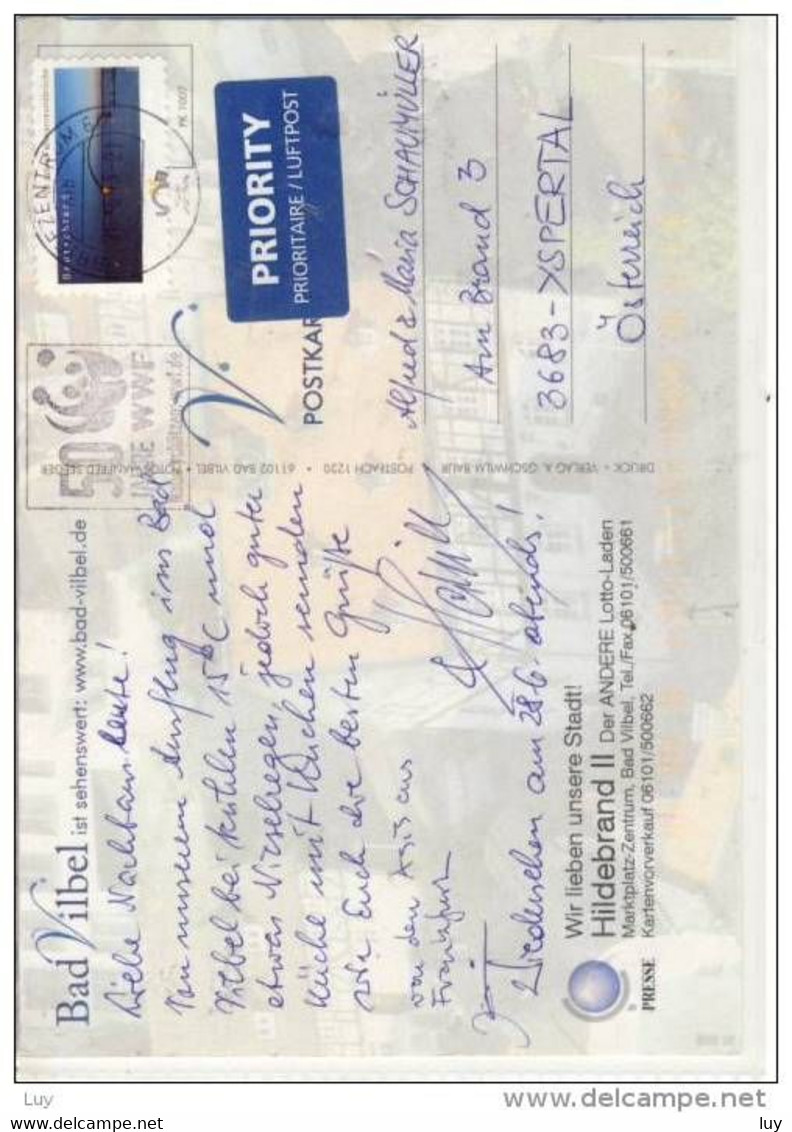 Bad Vilbel ist sehenswert: www.bad-vilbel.de
Liebe Nachbarsleute!
Von unserem Ausflug ins Bad
Vilbel bei kühlen 15°C und
etwas Nieselregen, jedoch guter
Küche mit Kuchen senden
wir Euch die besten Grüße
von den
aus
Frankfurt
Wiedersehen am 28.6. abends!
Wir lieben unsere Stadt!
Hildebrand II Der ANDERE Lotto-Laden
Marktplatz-Zentrum, Bad Vilbel, Tel./Fax 06101/500661
Kartenvorverkauf 06101/500662
PRESSE
DRUCK + VERLAG A. GSCHWILM BAUR • POSTFACH 1220 • 61102 BAD VILBEL • FOTOS MANFRED SEEGER
50
JAHRE WWF
Deutschland
ZENTRUM 6
PRIORITY
PRIORITAIRE / LUFTPOST
POSTKAR
V.
Alfred & Maria SCHAUMÜLLER
Am Brand 3
3683 - YSPERTAL
Österreich
Luy
delcampe.net
luy